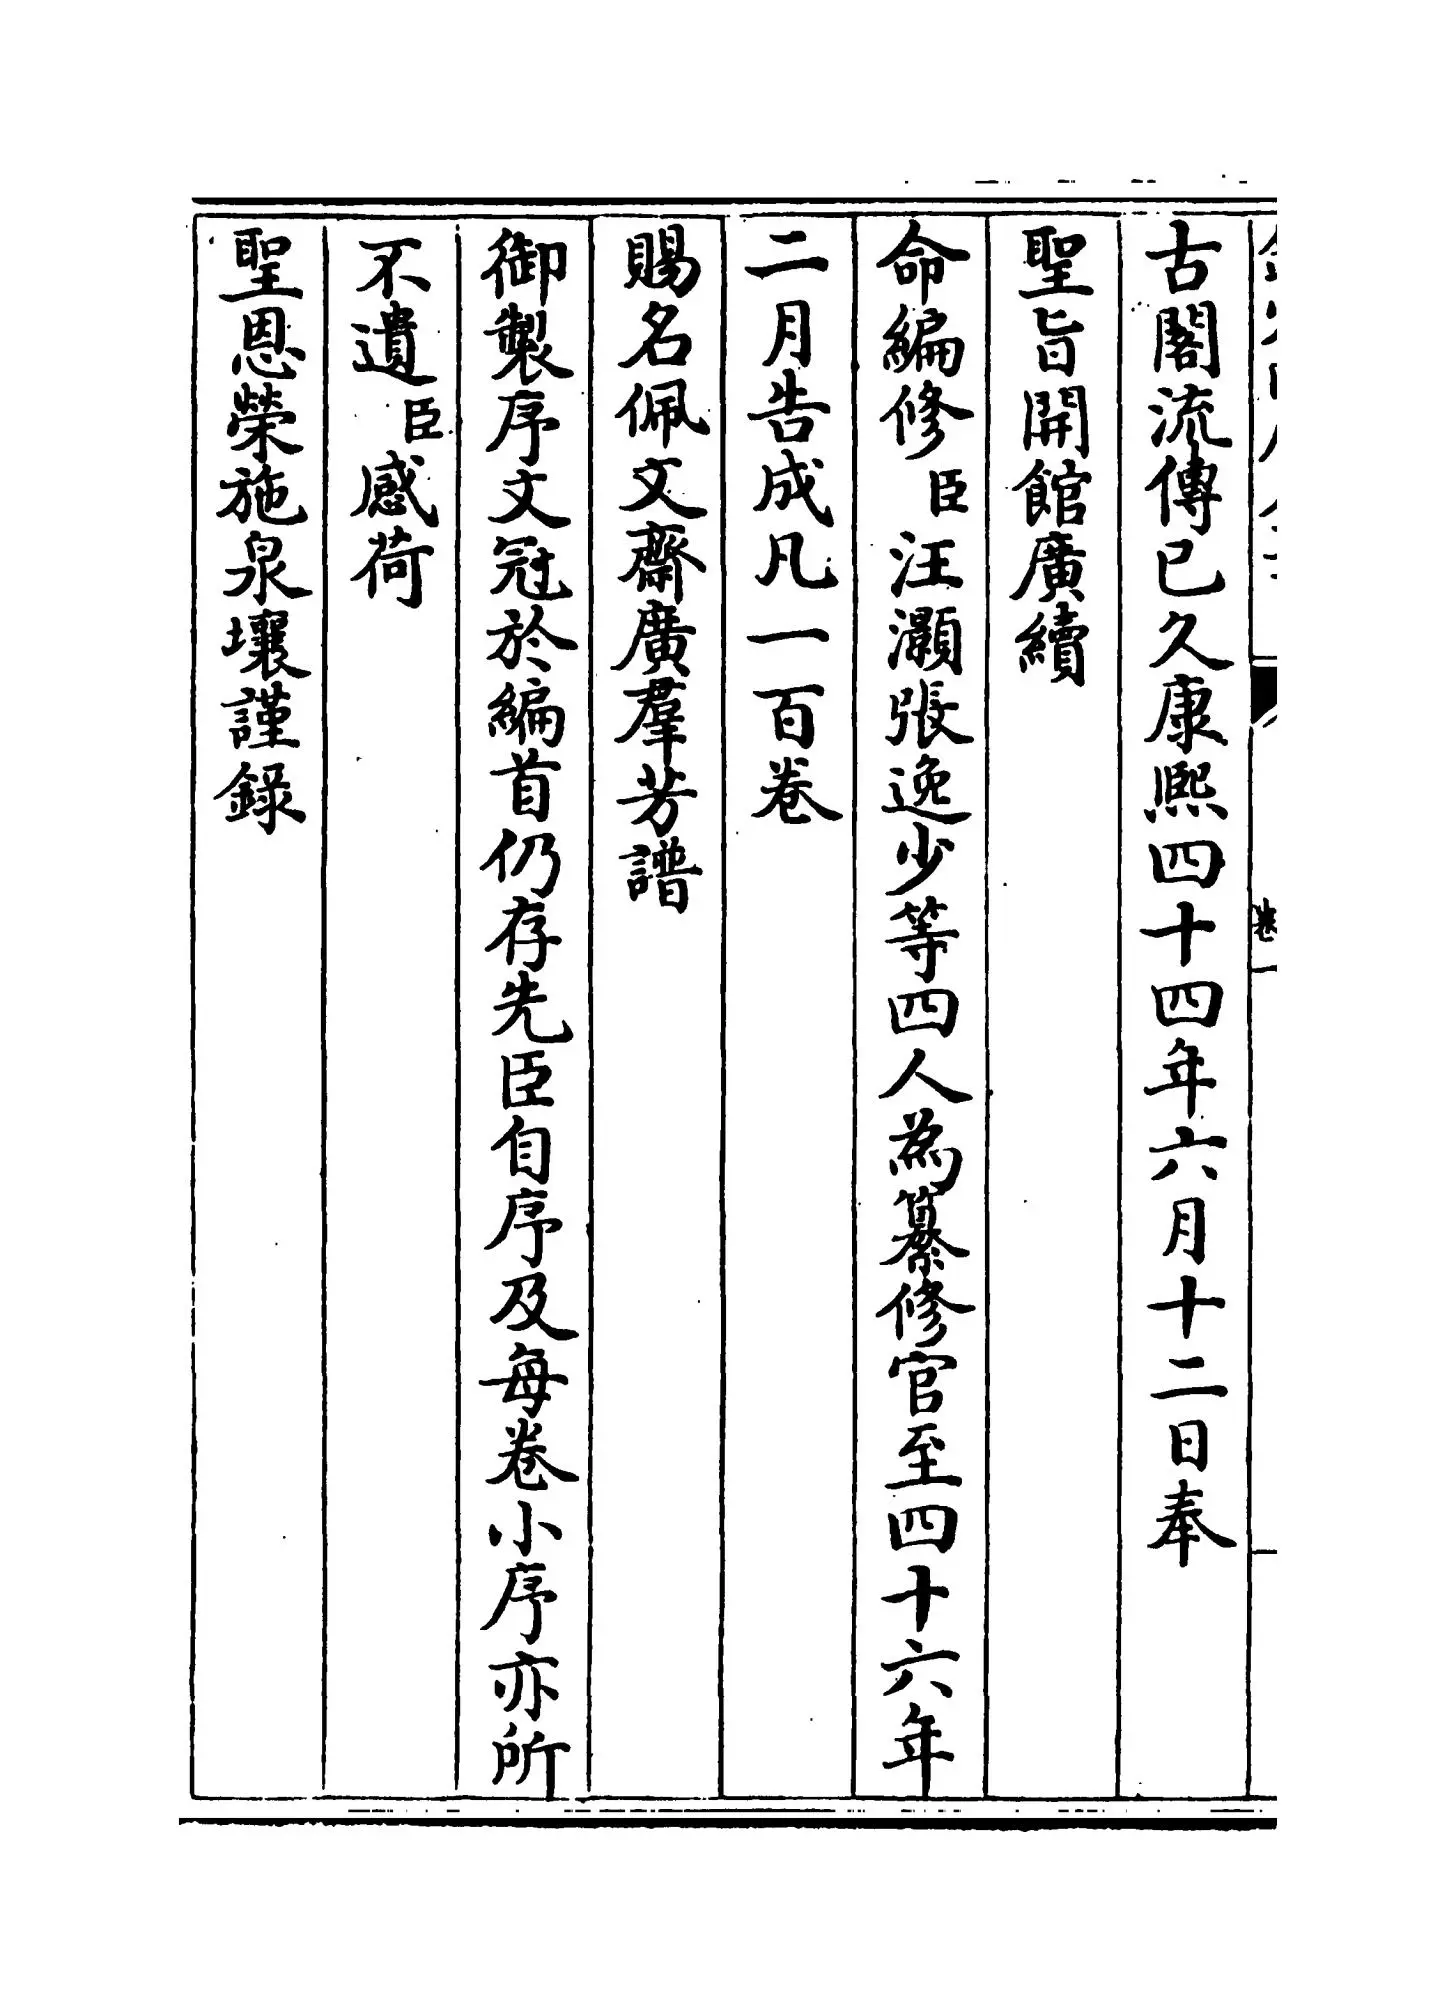 古閣流傳已久康熙四十四年六月十二日奉
聖旨開館廣續
命編修臣汪灝張逸少等四人為纂修官至四十六年
二月告成凡一百卷
賜名佩文齋廣羣芳譜
御製序文冠於編首仍存先臣自序及每卷小序亦所
不遺臣感荷
聖恩榮施泉壤謹錄
卷